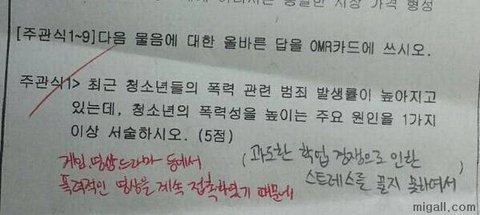 [주관식1~9]다음 물음에 대한 올바른 답을 OMR카드에 쓰시오.
주관식1> 최근 청소년들의 폭력 관련 범죄 발생률이 높아지고
있는데, 청소년의 폭력성을 높이는 주요 원인을 1가지
이상 서술하시오. (5점)
게임 영상드라마 등에서
폭력적인 영상을 계속 접촉하였기 때문에
(과도한 학업 경쟁으로 인한
스트레스를 풀지 못하여서)
migall.com